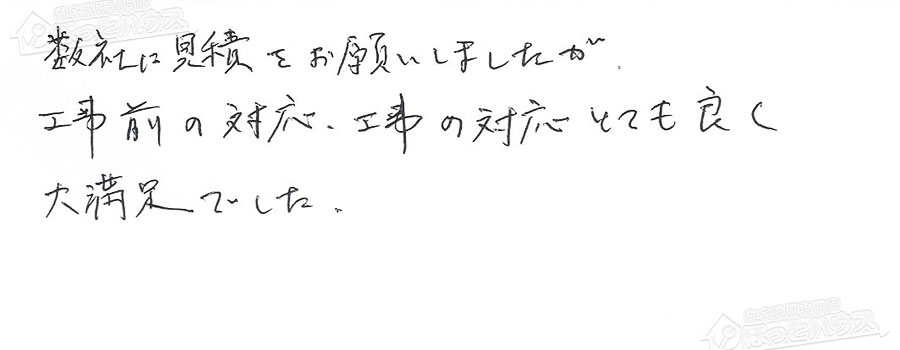 数社に見積をお願いしましたが、
工事前の対応、工事の対応とても良く
大満足でした。
ほっとハウス